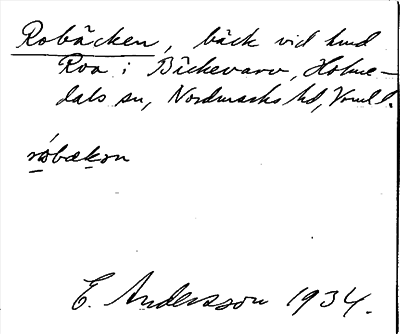 Robäcken, bäck vid hmd
Roa i Bickevarv, Holme-
dals sn, Nordmarks hd, Vrml.
róbækən
E. Andersson 1934.